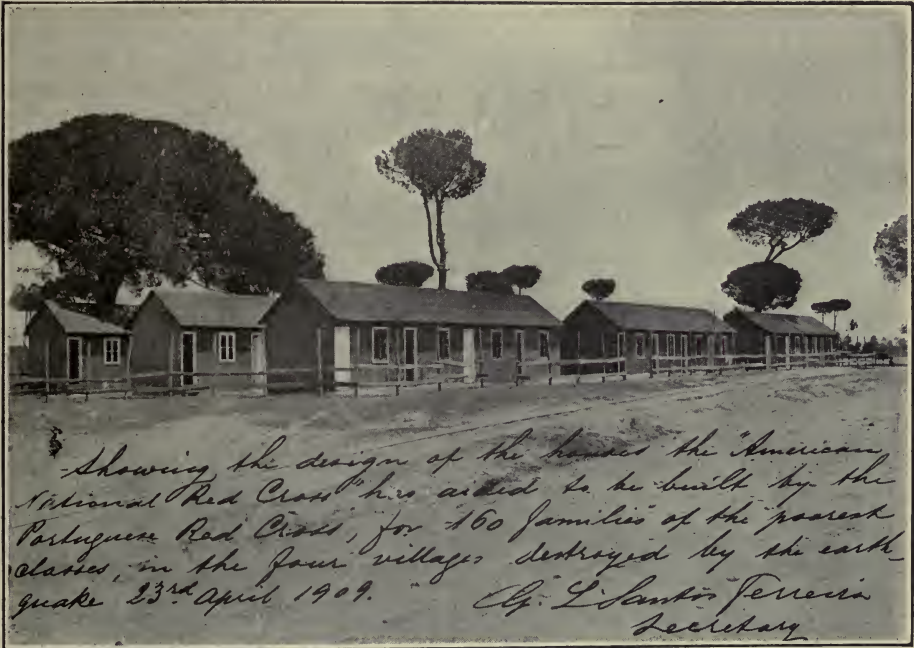 Showing the design of the houses the "American
National Red Cross" has aided to be built by the
Portuguese Red Cross, for 160 families of the poorest
classes, in the four villages destroyed by the earth
quake 23rd April 1909.
G. L. Santos Ferreira
Secretary